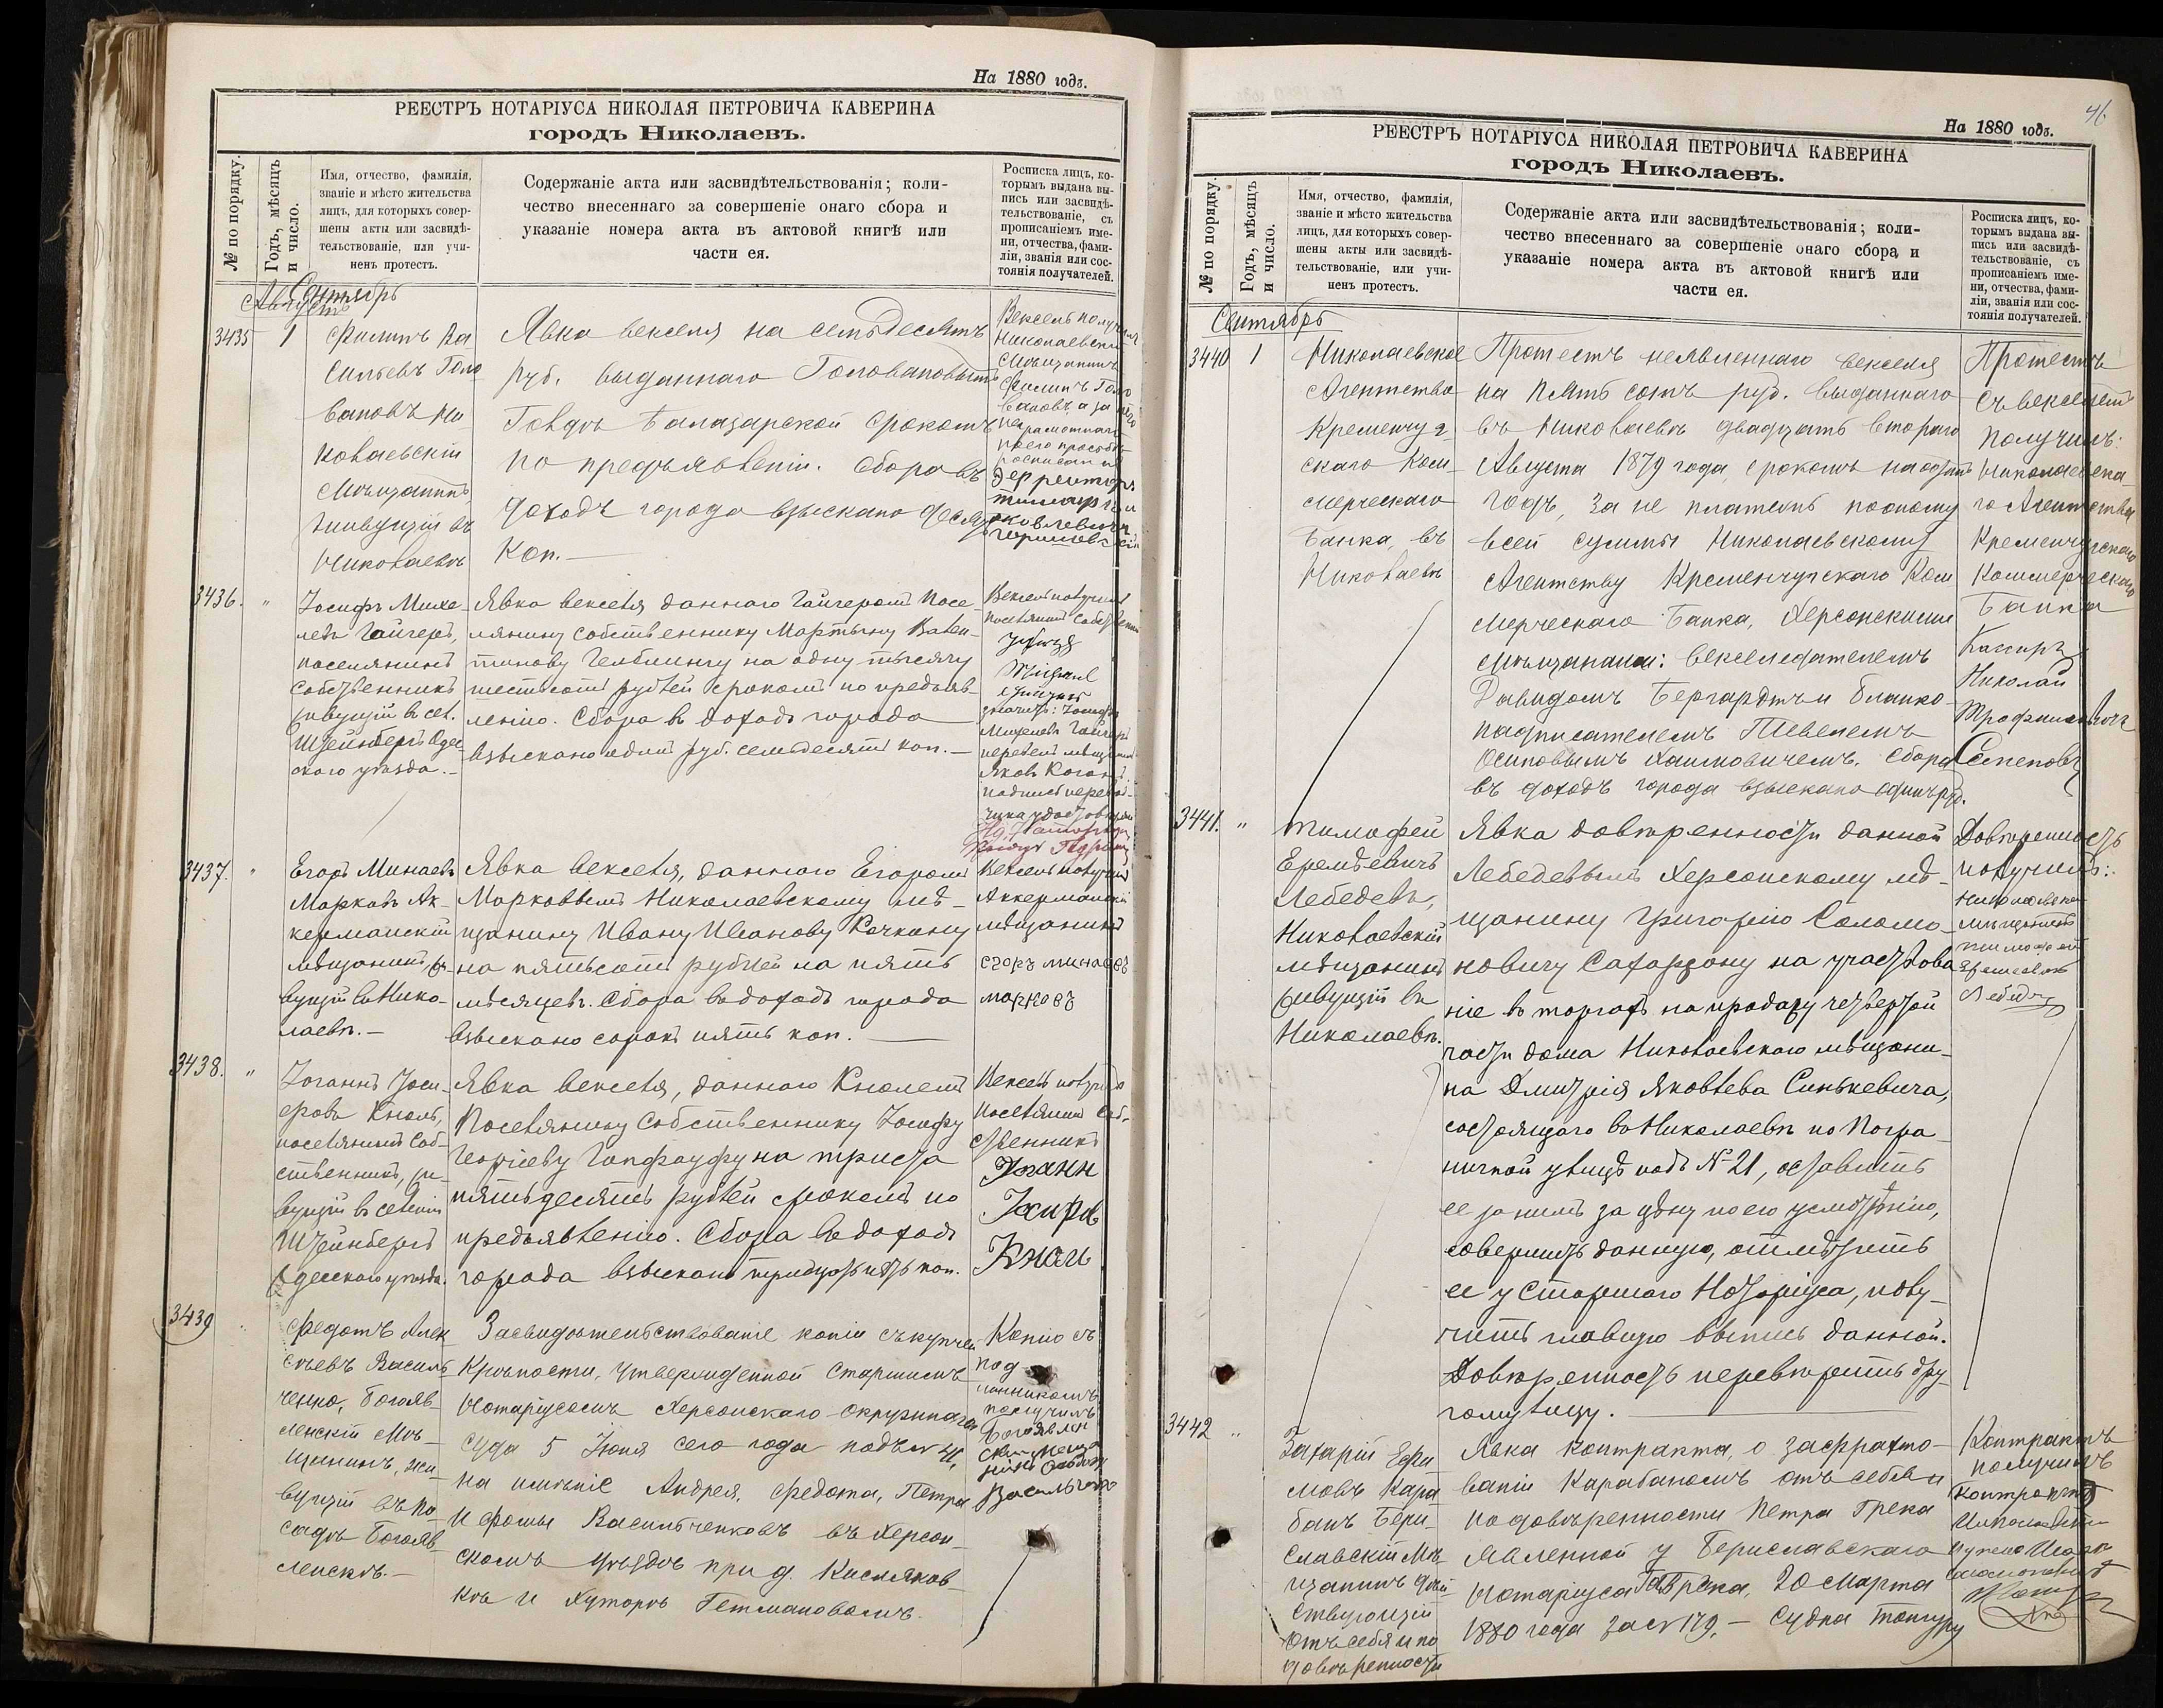 На 1880 годъ.
РЕЕСТРЪ НОТАРІУСА НИКОЛАЯ ПЕТРОВИЧА КАВЕРИНА
городъ Николаевъ.
№ по порядку.
Годъ, мѣсяцъ
и число.
Имя, отчество, фамилія,
званіе и мѣсто жительства
лицъ, для которыхъ совер-
шены акты или засвидѣ-
тельствованіе, или учи-
ненъ протестъ.
Содержаніе акта или засвидѣтельствованія; коли-
чество внесеннаго за совершеніе онаго сбора и
указаніе номера акта въ актовой книгѣ или
части ея.
Росписка лицъ, ко-
торымъ выдана вы-
пись или засвидѣ-
тельствованіе, съ
прописаніемъ име-
ни, отчества, фами-
ліи, званія или сос-
тоянія получателей.
Сентябрь
Августъ
3435
1
Филипъ Ва
сильевъ Голо
вановъ Ни
колаевскій
Мѣщанинъ,
живущій въ
Николаевѣ
Явка векселя на семьдесятъ
руб. выданнаго Головановымъ
срокомъ
по предъявленіи. Сбора въ
доходъ города взыскано десять
Коп.—
Вексель получилъ
Николаевскій
Мѣщанинъ
Филипъ Голо
вановъ, а за него
неграмотнаго
по его просьбѣ
росписался
3436.
"
Іосифъ Михе-
левъ Гайгеръ,
поселянинъ
собственникъ
живущій в сел.
Штейнбергъ Одес-
скаго уѣзда.—
Явка векселя даннаго Гайгеромъ Посе-
лянину собственнику Мартыну Вален-
тинову Гельблингу на одну тысячу
шестьсотъ рублей срокомъ по предъяв-
ленію. Сбора в доходъ города
взыскано одинъ руб. семьдесятъ коп.—
Вексель получилъ
поселянинъ собственникъ
значитъ: Іосифъ
Михелевъ Гайгеръ
перевелъ мѣщанинъ
Яковъ Коганъ.
подпись перевод-
чика удостовѣряю
3437.
"
Егоръ Минаевъ
Марковъ Ак-
керманскій
мѣщанинъ, жи-
вущій въ Нико-
лаевѣ.—
Явка векселя, даннаго Егоромъ
Марковымъ Николаевскому мѣ-
щанину Ивану Иванову Кочкану
на пятьсотъ рублей на пять
мѣсяцевъ. Сбора въ доходъ города
взыскано сорокъ пять коп.
Вексель получилъ
Аккерманскій
мѣщанинъ
егоръ минаевъ
марковъ
3438.
"
Іоганнъ Іоси-
фовъ Кноль,
поселянинъ Соб-
ственникъ, жи-
вущій в селеніи
Штейнбергъ
Одесскаго уѣзда.
Явка векселя, даннаго Кнолемъ
Поселянину Собственнику Іосифу
Георгіеву Гопфауфу на триста
пятьдесятъ рублей срокомъ по
предъявленію. Сбора въ доходъ
города взыскано тридцать пять коп.
Вексель получилъ
поселянинъ соб-
ственникъ
Іоганн
Кноль
3439
Федотъ Алек
сѣевъ Василь
ченко, Богояв-
ленскій Мѣ-
щанинъ, жи-
вущій въ По-
садѣ Богояв-
ленскѣ.—
Засвидѣтельствованіе копіи съ купчей
Крѣпости, утвержденной Старшимъ
Нотаріусомъ Херсонскаго Окружнаго
суда 5 Іюня сего года подъ №
на имѣніе Андрея, Федота, Петра
и Фомы Васильченковъ въ Херсон-
скомъ уѣздѣ при д. Кисляков-
кѣ и Хуторѣ Гетмановомъ.
Копію съ
под-
линникомъ
получилъ
Богоявлен
скій мещанинъ
Федотъ
Васильченко
46
На 1880 годъ.
РЕЕСТРЪ НОТАРІУСА НИКОЛАЯ ПЕТРОВИЧА КАВЕРИНА
городъ Николаевъ.
№ по порядку.
Годъ, мѣсяцъ
и число.
Имя, отчество, фамилія,
званіе и мѣсто жительства
лицъ, для которыхъ совер-
шены акты или засвидѣ-
тельствованіе, или учи-
ненъ протестъ.
Содержаніе акта или засвидѣтельствованія; коли-
чество внесеннаго за совершеніе онаго сбора и
указаніе номера акта въ актовой книгѣ или
части ея.
Росписка лицъ, ко-
торымъ выдана вы-
пись или засвидѣ-
тельствованіе, съ
прописаніемъ име-
ни, отчества, фами-
ліи, званія или сос-
тоянія получателей.
Сентябрь
3440
1
Николаевское
Агентство
Кременчуг-
скаго Ком-
мерческаго
Банка, въ
Николаевѣ
Протестъ неявленнаго векселя
на пять сотъ руб. выданнаго
въ Николаевѣ двадцать втораго
Августа 1879 года, срокомъ на одинъ
годъ, за не платежъ по оному
всей суммы Николаевскому
Агентству Кременчугскаго Ком
мерческаго Банка, Херсонскими
Мѣщанами: векселедателемъ
Давидомъ Бергардтъ и бланко-
надписателемъ Шевелемъ
Осиповымъ Хаимовичемъ. Сбора
въ доходъ города взыскано одинъ р.
Протестъ
съ векселемъ
получилъ:
Николаевска-
го Агентства
Кременчугскаго
Коммерческаго
Банка
Кассиръ
Николай
Трофимовичъ
Семеновъ
3441.
"
Тимофей
Еремѣевичъ
Лебедевъ,
Николаевскій
мѣщанинъ
живущій въ
Николаевѣ.
Явка довѣренности данной
Лебедевымъ Херсонскому мѣ-
щанину Григорію Соломо-
новичу Сафардону на участвова
ніе въ торгахъ на продажу четвертой
части дома Николаевскаго мѣщани-
на Дмитрія Яковлева Синькевича,
состоящаго въ Николаевѣ по Погра-
ничной улицѣ подъ № 21, оставить
ее за нимъ за цѣну по его усмотрѣнію,
совершить данную, отмѣтить
ее у Старшаго Нотаріуса, полу-
чить главную выпись данной.
Довѣренность перевѣрить дру-
гому лицу.
Довѣренность
получилъ:
Николаевской
мещанинъ
тимофей
Еремеевъ
Лебедевъ
3442
"
Захарій Ефи
мовъ Кара
банъ Бери-
славскій Мѣ-
щанинъ дѣй-
ствующій
отъ себя и по
довѣренности
Явка контракта, о зафрахто-
ваніи Карабаномъ отъ себя и
по довѣренности Петра Грека
явленной у Бериславскаго
Нотаріуса Гаврека, 20 Марта
1880 года за № 179.— Судна
Контрактъ
получилъ